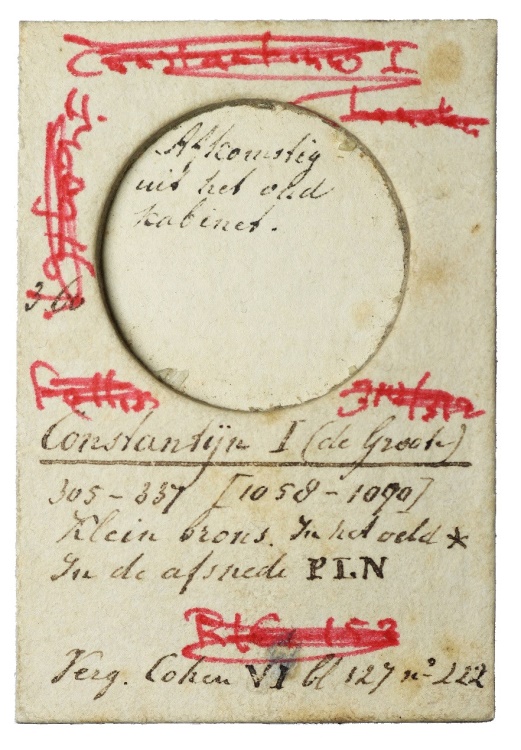 Constantinus I
London
Afkomstig
uit het oud
kabinet.
360
Follis
Constantijn I (de Groote)
305 – 337 [1058 – 1090]
Klein brons. In het veld *
In de afsnede PLN
RIC 153
Verg. Cohen VI bl 127 no 222